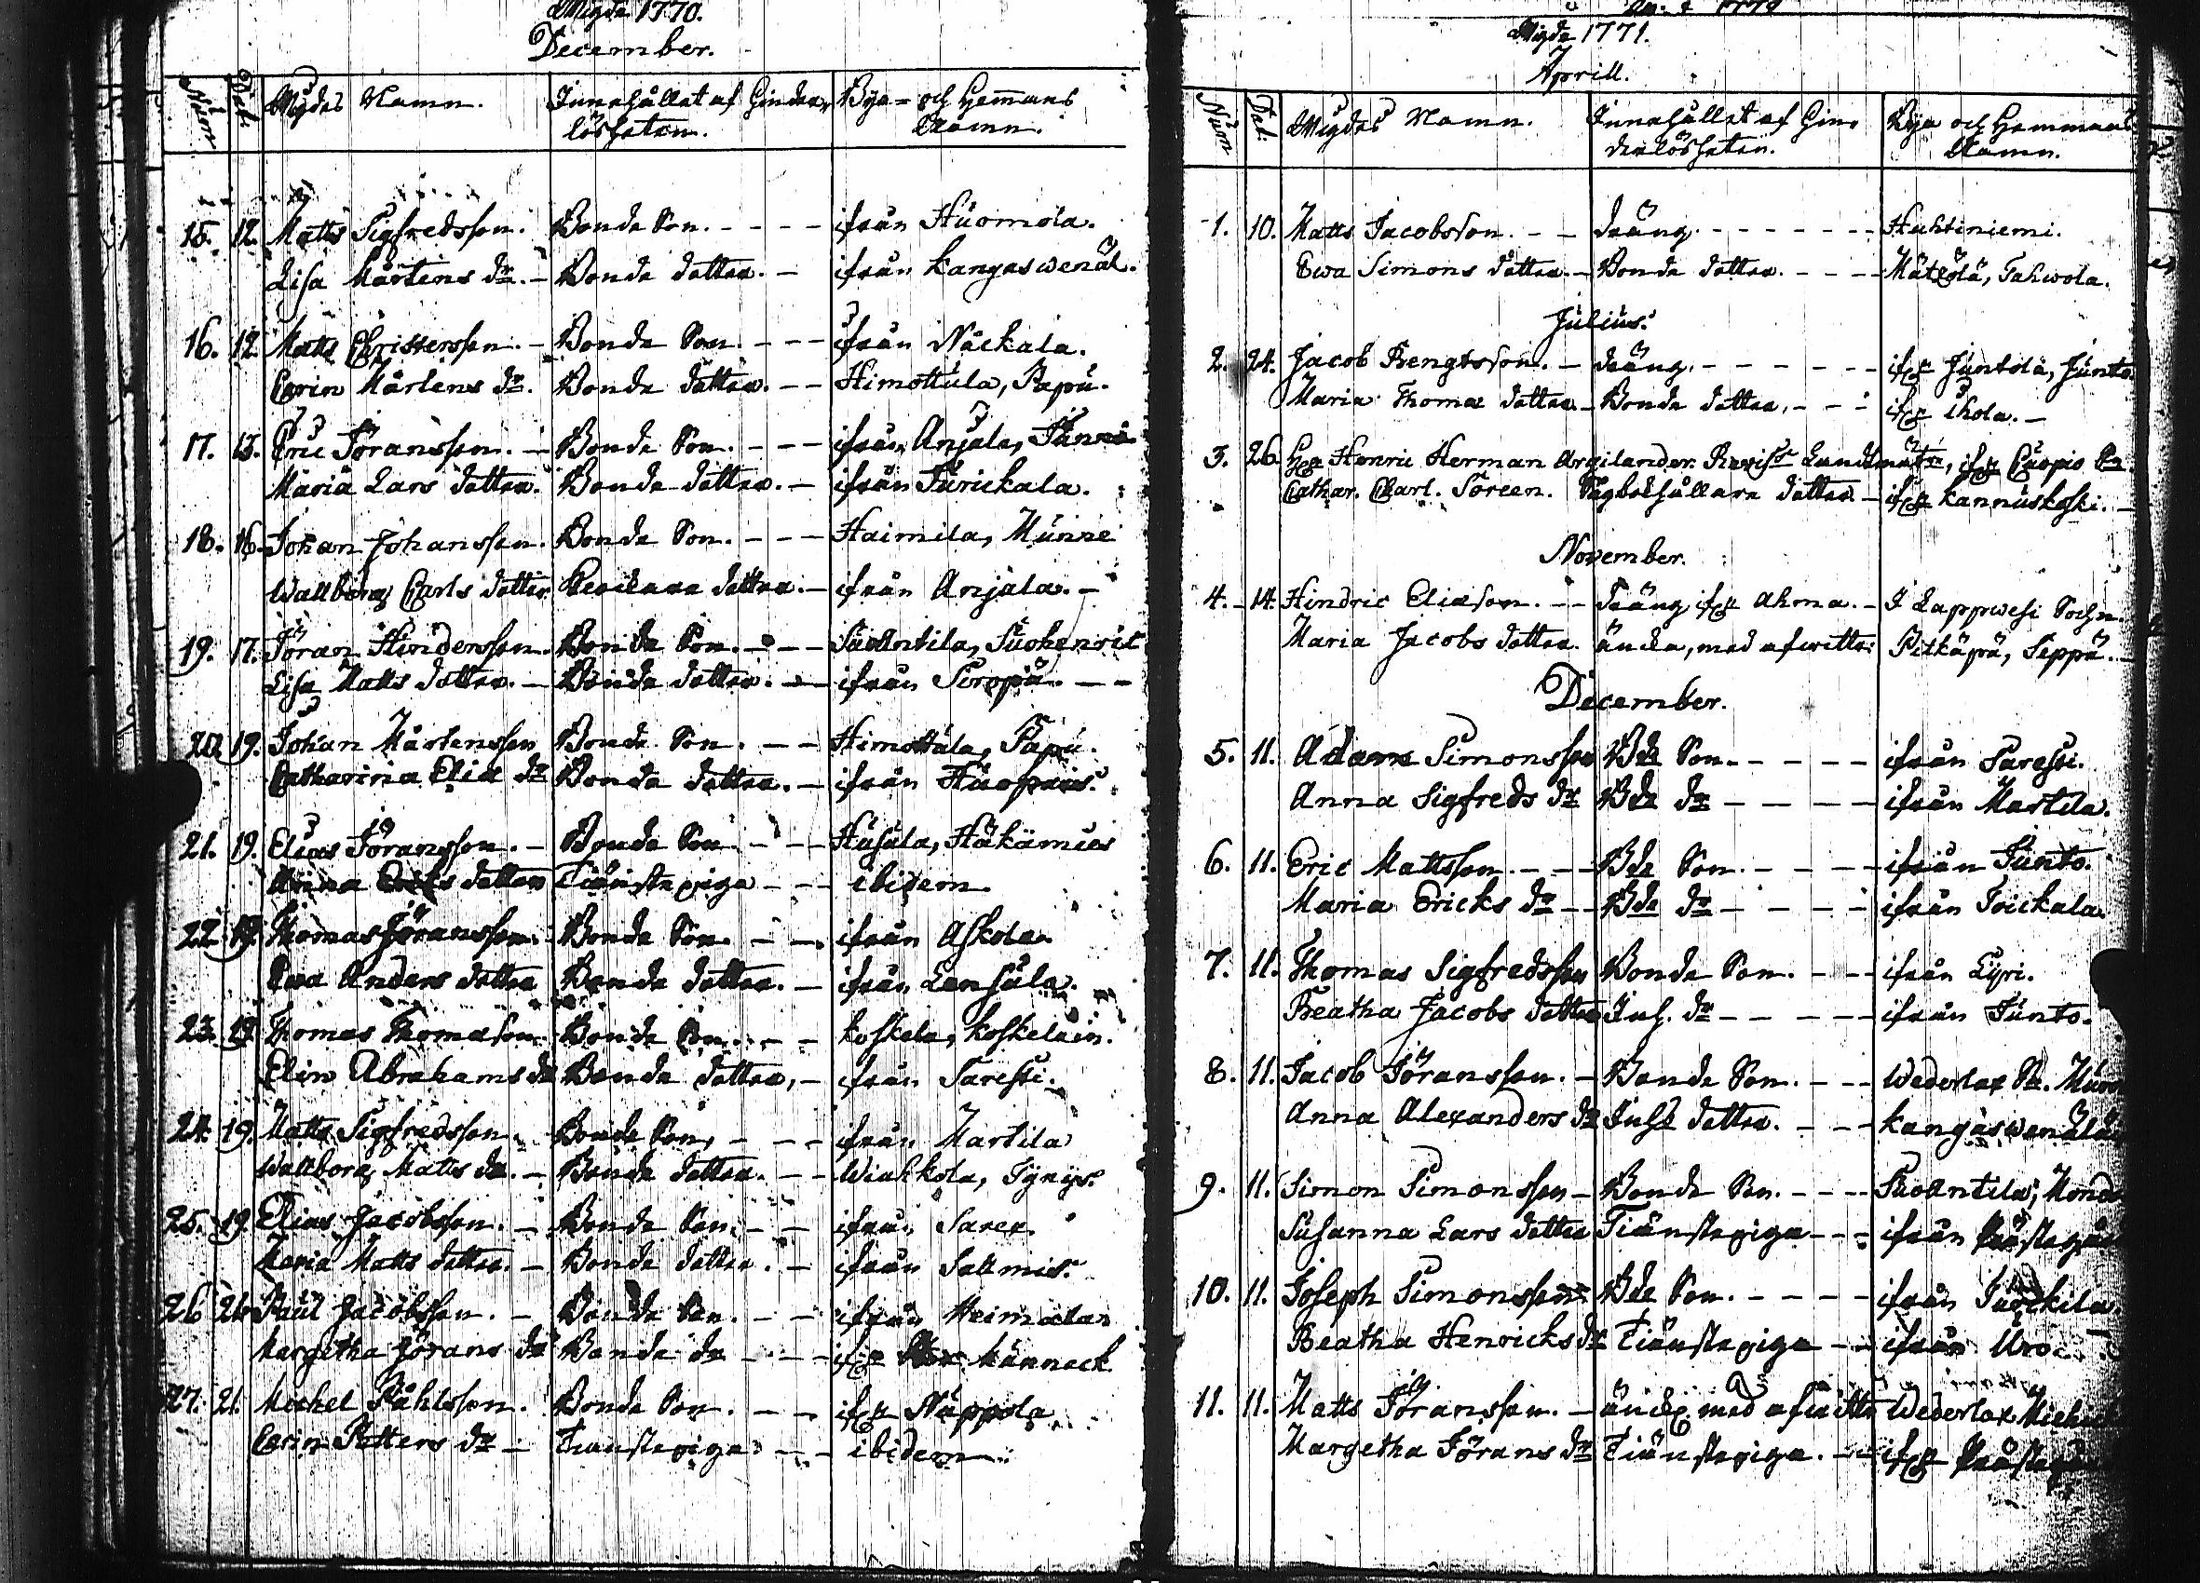 Wigde 1770.
December.
Num Dat: Wigdes Namn. Innehållet af Hinder- Bya- och Hemmans
lösheten. Namn.
15. 12. Matts Sigfredsson. Bonde Son. - - - - ifrån Huomola.
Lisa Mårtens dr. - Bonde dotter. - ifrån Kangaswenäl.
16. 12. Matts Christersson. - Bonde Son. - - - ifrån Näckala.
Carin Mårtens dr. Bonde dotter. - - Himottula, Papu.
17. 13. Eric Jöransson. - Bonde Son. - - - ifrån Anjala,
Maria Lars dotter. Bonde dotter. - ifrån Jurickala.
18. 16. Johan Johansson. Bonde Son. - - - Haimila, Munne
Wallborg Carls dotter dotter. - ifrån Anjala. -
19. 17. Jöran Hindersson. Bonde Son. - - - SuoAntila,
Lisa Matts dotter. - Bonde dotter. - ifrån
20. 19. Johan Mårtensson Bonde Son. - - Himottula, Papu.
Catharina Eliæ dr Bonde dotter. - ifrån
21. 19. Elias Jöransson. - Bonde Son - - Husula, Häkämies
Anna dotter Tiänstepiga - - - ibidem.
22. 19. Thomas Jöransson. Bonde Son. - - ifrån Askola.
Ewa Anders dotter Bonde dotter. - ifrån Lensula.
23. 19. Thomas Thomason Bonde Son. - - Koskela, Koskelain.
Elin Abrahams dr Bonde dotter, - ifrån Saressi.
24. 19. Matts Sigfredsson. Bonde Son, - - - ifrån Martila
Wallborg Matts dr. - Bonde dotter. - - Wiukkola, Tynys.
25. 19. Elias Jacobsson. - Bonde Son. - - ifrån Sarex.
Maria Matts dotter. - Bonde dotter. - ifrån Saltmis.
26. 26. Paul Jacobsson. - Bonde Son. - - ifrån Heimala
Margetha Jörans dr Bonde dr - - - ifr Männeck
27. 21. Michel Påhlsson. Bonde Son. - - ifr Näppola
Carin Petters dr - Tiänstepiga - - ibidem.
Wigde 1771.
Aprill.
Num Dat: Wigdes Namn. Innehållet af Hin- Bya och Hemmans
derlösheten. Namn.
1. 10. Matts Jacobsson. - - dräng. - - - - - - Huhtiniemi.
Ewa Simons dotter. - Bonde dotter. - - - Mätzölä, Tahwola.
Julius.
2. 24. Jacob Bengtsson. - dräng. - - - - - - ifr Juntola, Junto.
Maria Thomæ dotter. Bonde dotter. - - - ifr Ihola. -
3. 26. Hr Henric Herman Argilander. Landtmät:, ifr Cuopio
Cathar. Charl. Soreen. dotter - ifr Kannuskoski. -
November.
4. 14. Hindric Eliason. - - dräng ifr Ahma. - I Lappwesi Sochn.
Maria Jacobs dotter. änka, med afwitter: Pitkäpä, Seppä. -
December.
5. 11. Adam Simonsson Bde Son. - - - - - ifrån Saressi.
Anna Sigfreds dr Bde dr - - - - ifrån Martila.
6. 11. Eric Mattsson. - - - Bde Son. - - - - ifrån Junto.
Maria Ericks dr - - Bde dr - - - - ifrån Joickala.
7. 11. Thomas Sigfredsson Bonde Son. - - - ifrån Lyri.
Beatha Jacobs dotter Inh. dr - - - - - ifrån Junto.
8. 11. Jacob Jöransson. - Bonde Son. - - - Wederlax Sn.
Anna Alexanders dr Inhs dotter. - - -
9. 11. Simon Simonsson - Bonde Son. - - - SuoAntila,
Susanna Lars dotter Tiänstepiga - - - ifrån
10. 11. Joseph Simonsson Bde Son. - - - - - ifrån
Beatha Henricks dr Tiänstepiga - - ifrån
11. 11. Matts Jöransson. - änckl med afwittr Wederlax
Margetha Jörans dr Tiänstepiga. - - ifr